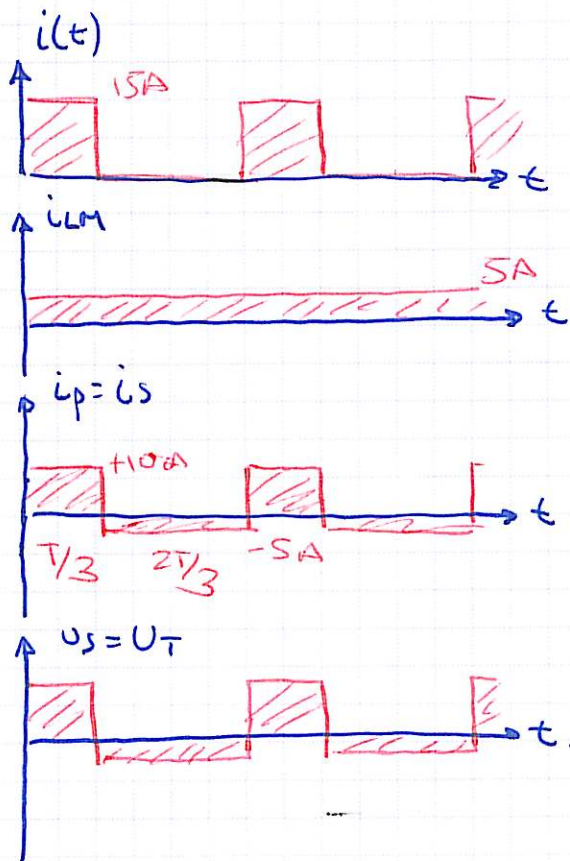 i(t)
15A
t
iLM
5A
t
ip = is
+10A
t
T/3 2T/3 -5A
us = UT
t